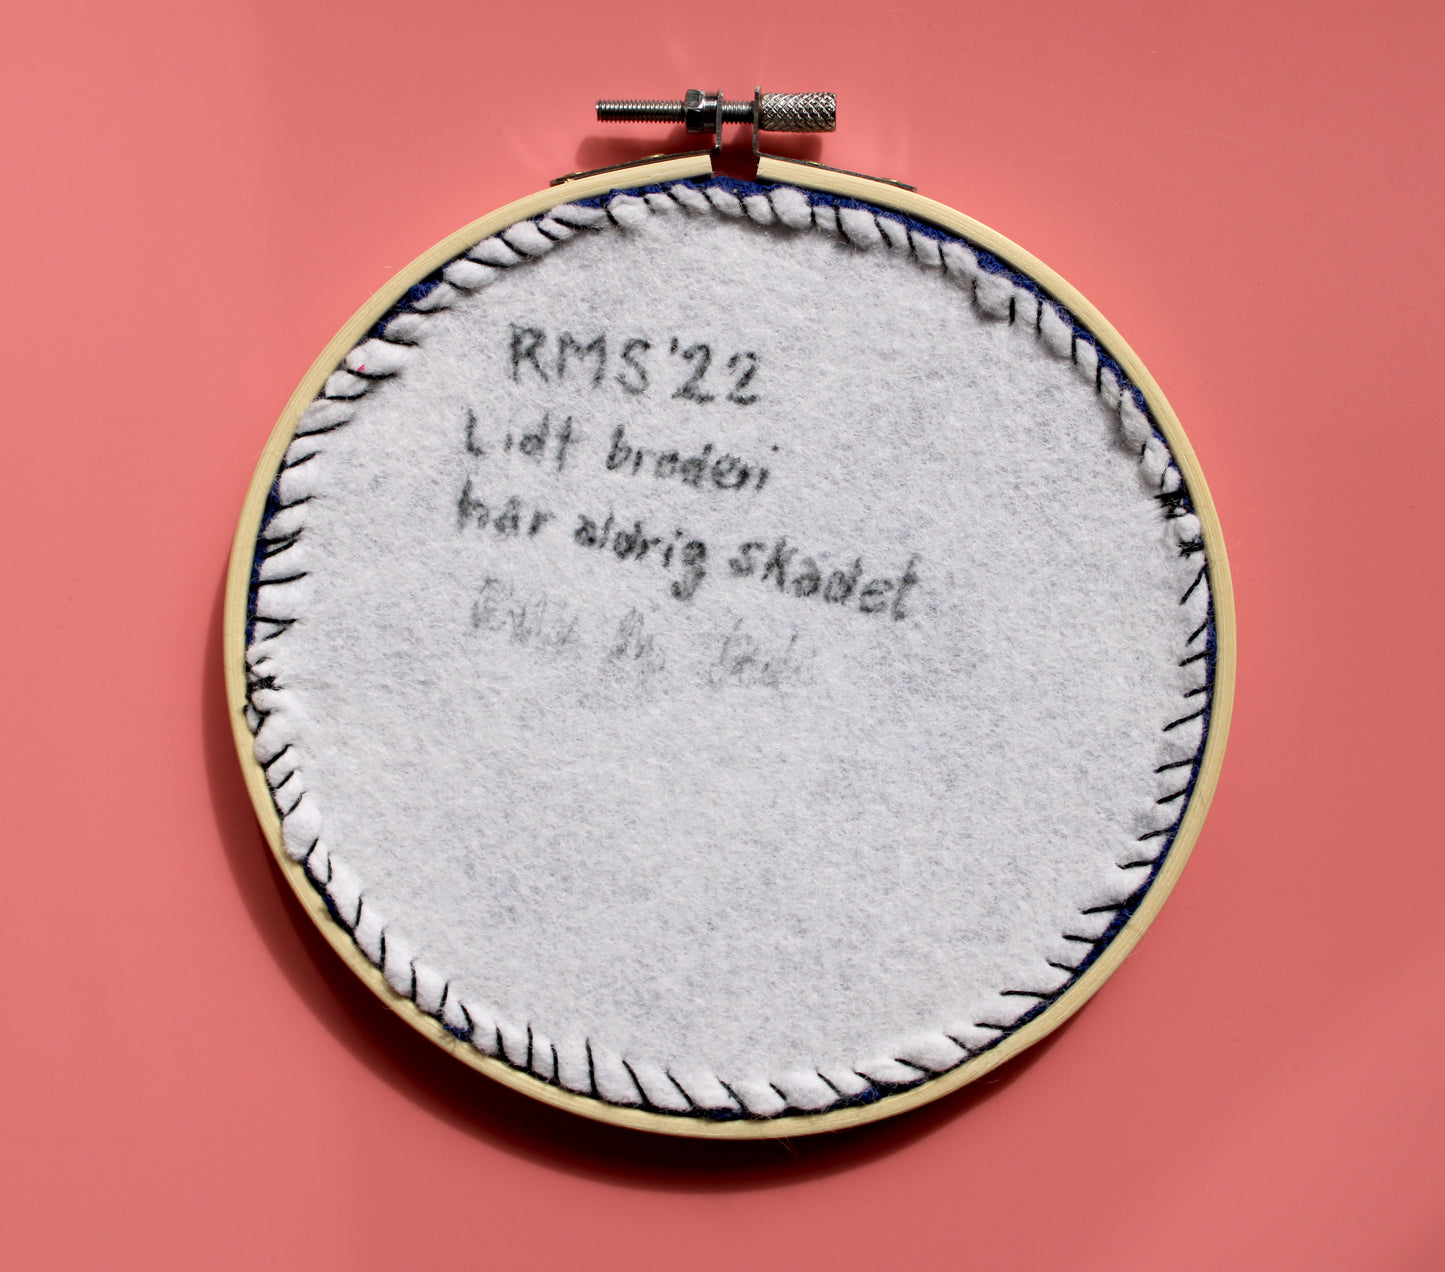 RMS '22
Lidt broderi
har aldrig skadet